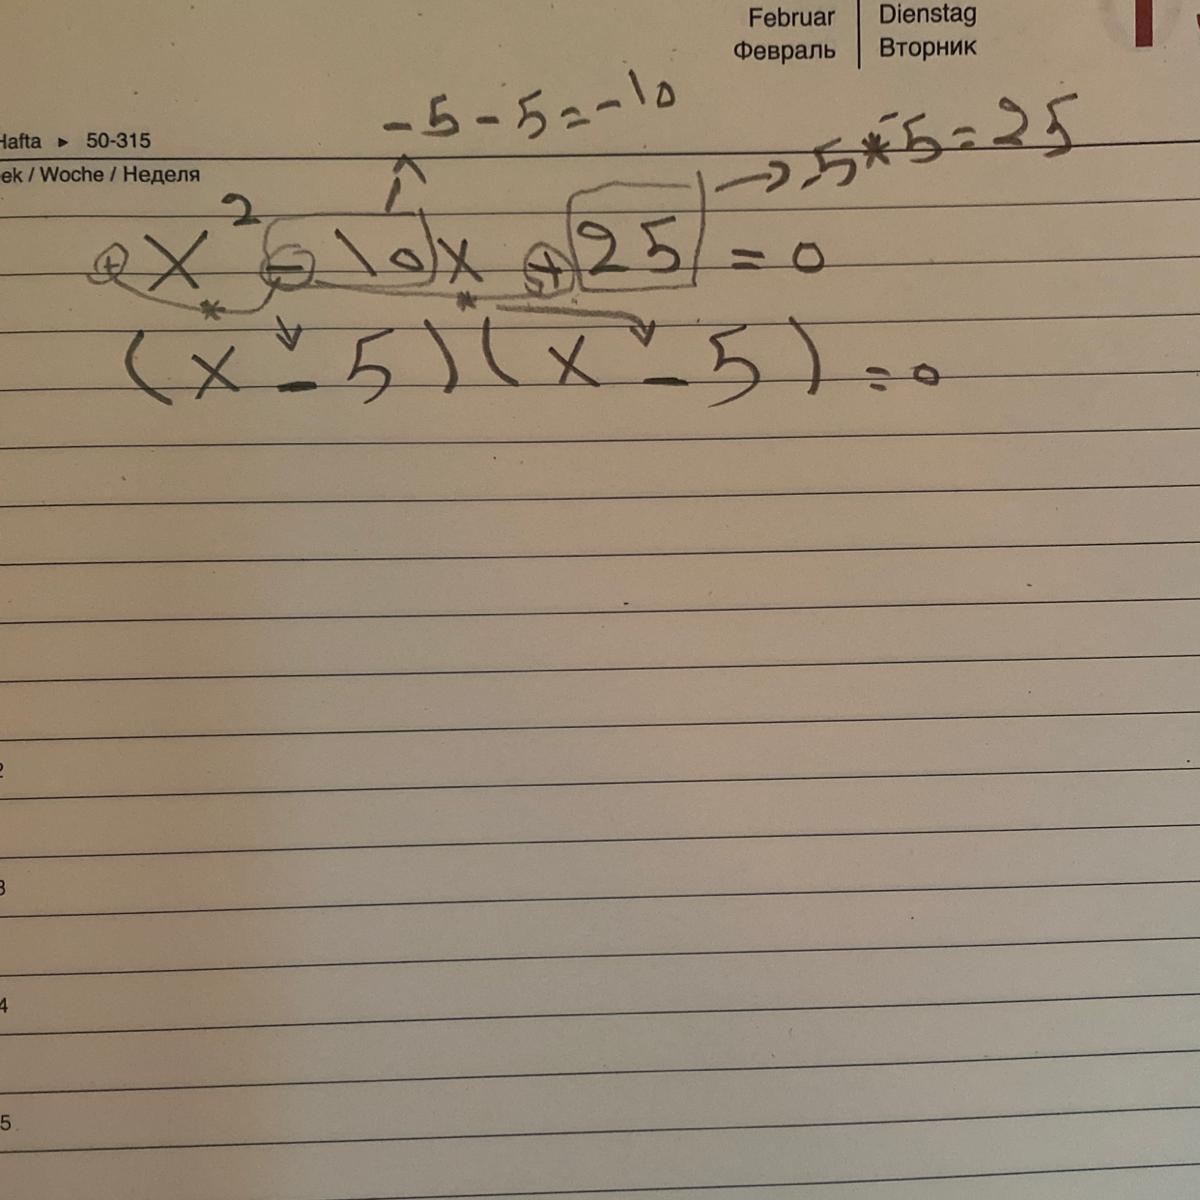 Februar | Dienstag
Февраль | Вторник
-5-5=-10
Hafta ► 50-315
→ -5*-5=25
ek / Woche / Неделя
+x²-10x+25=0
* *
(x-5)(x-5)=0
2
3
4
5